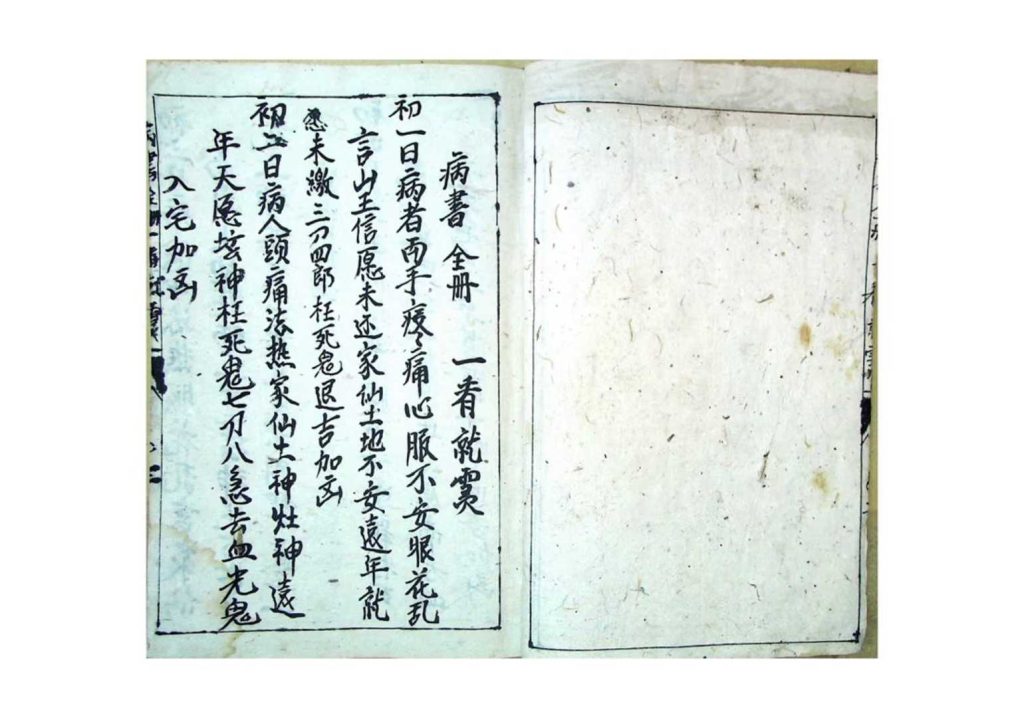 病書 全册 一看就灵
初一日病者両手疼痛心服不安眼花乱
言山王信愿未还家仙土地不安遠年就
愿未繳三刀四郎枉死鬼退吉加凶
初二日病人頭痛法热家仙土神灶神遠
年天愿坟神枉死鬼七刀八急去血光鬼
入宅加凶